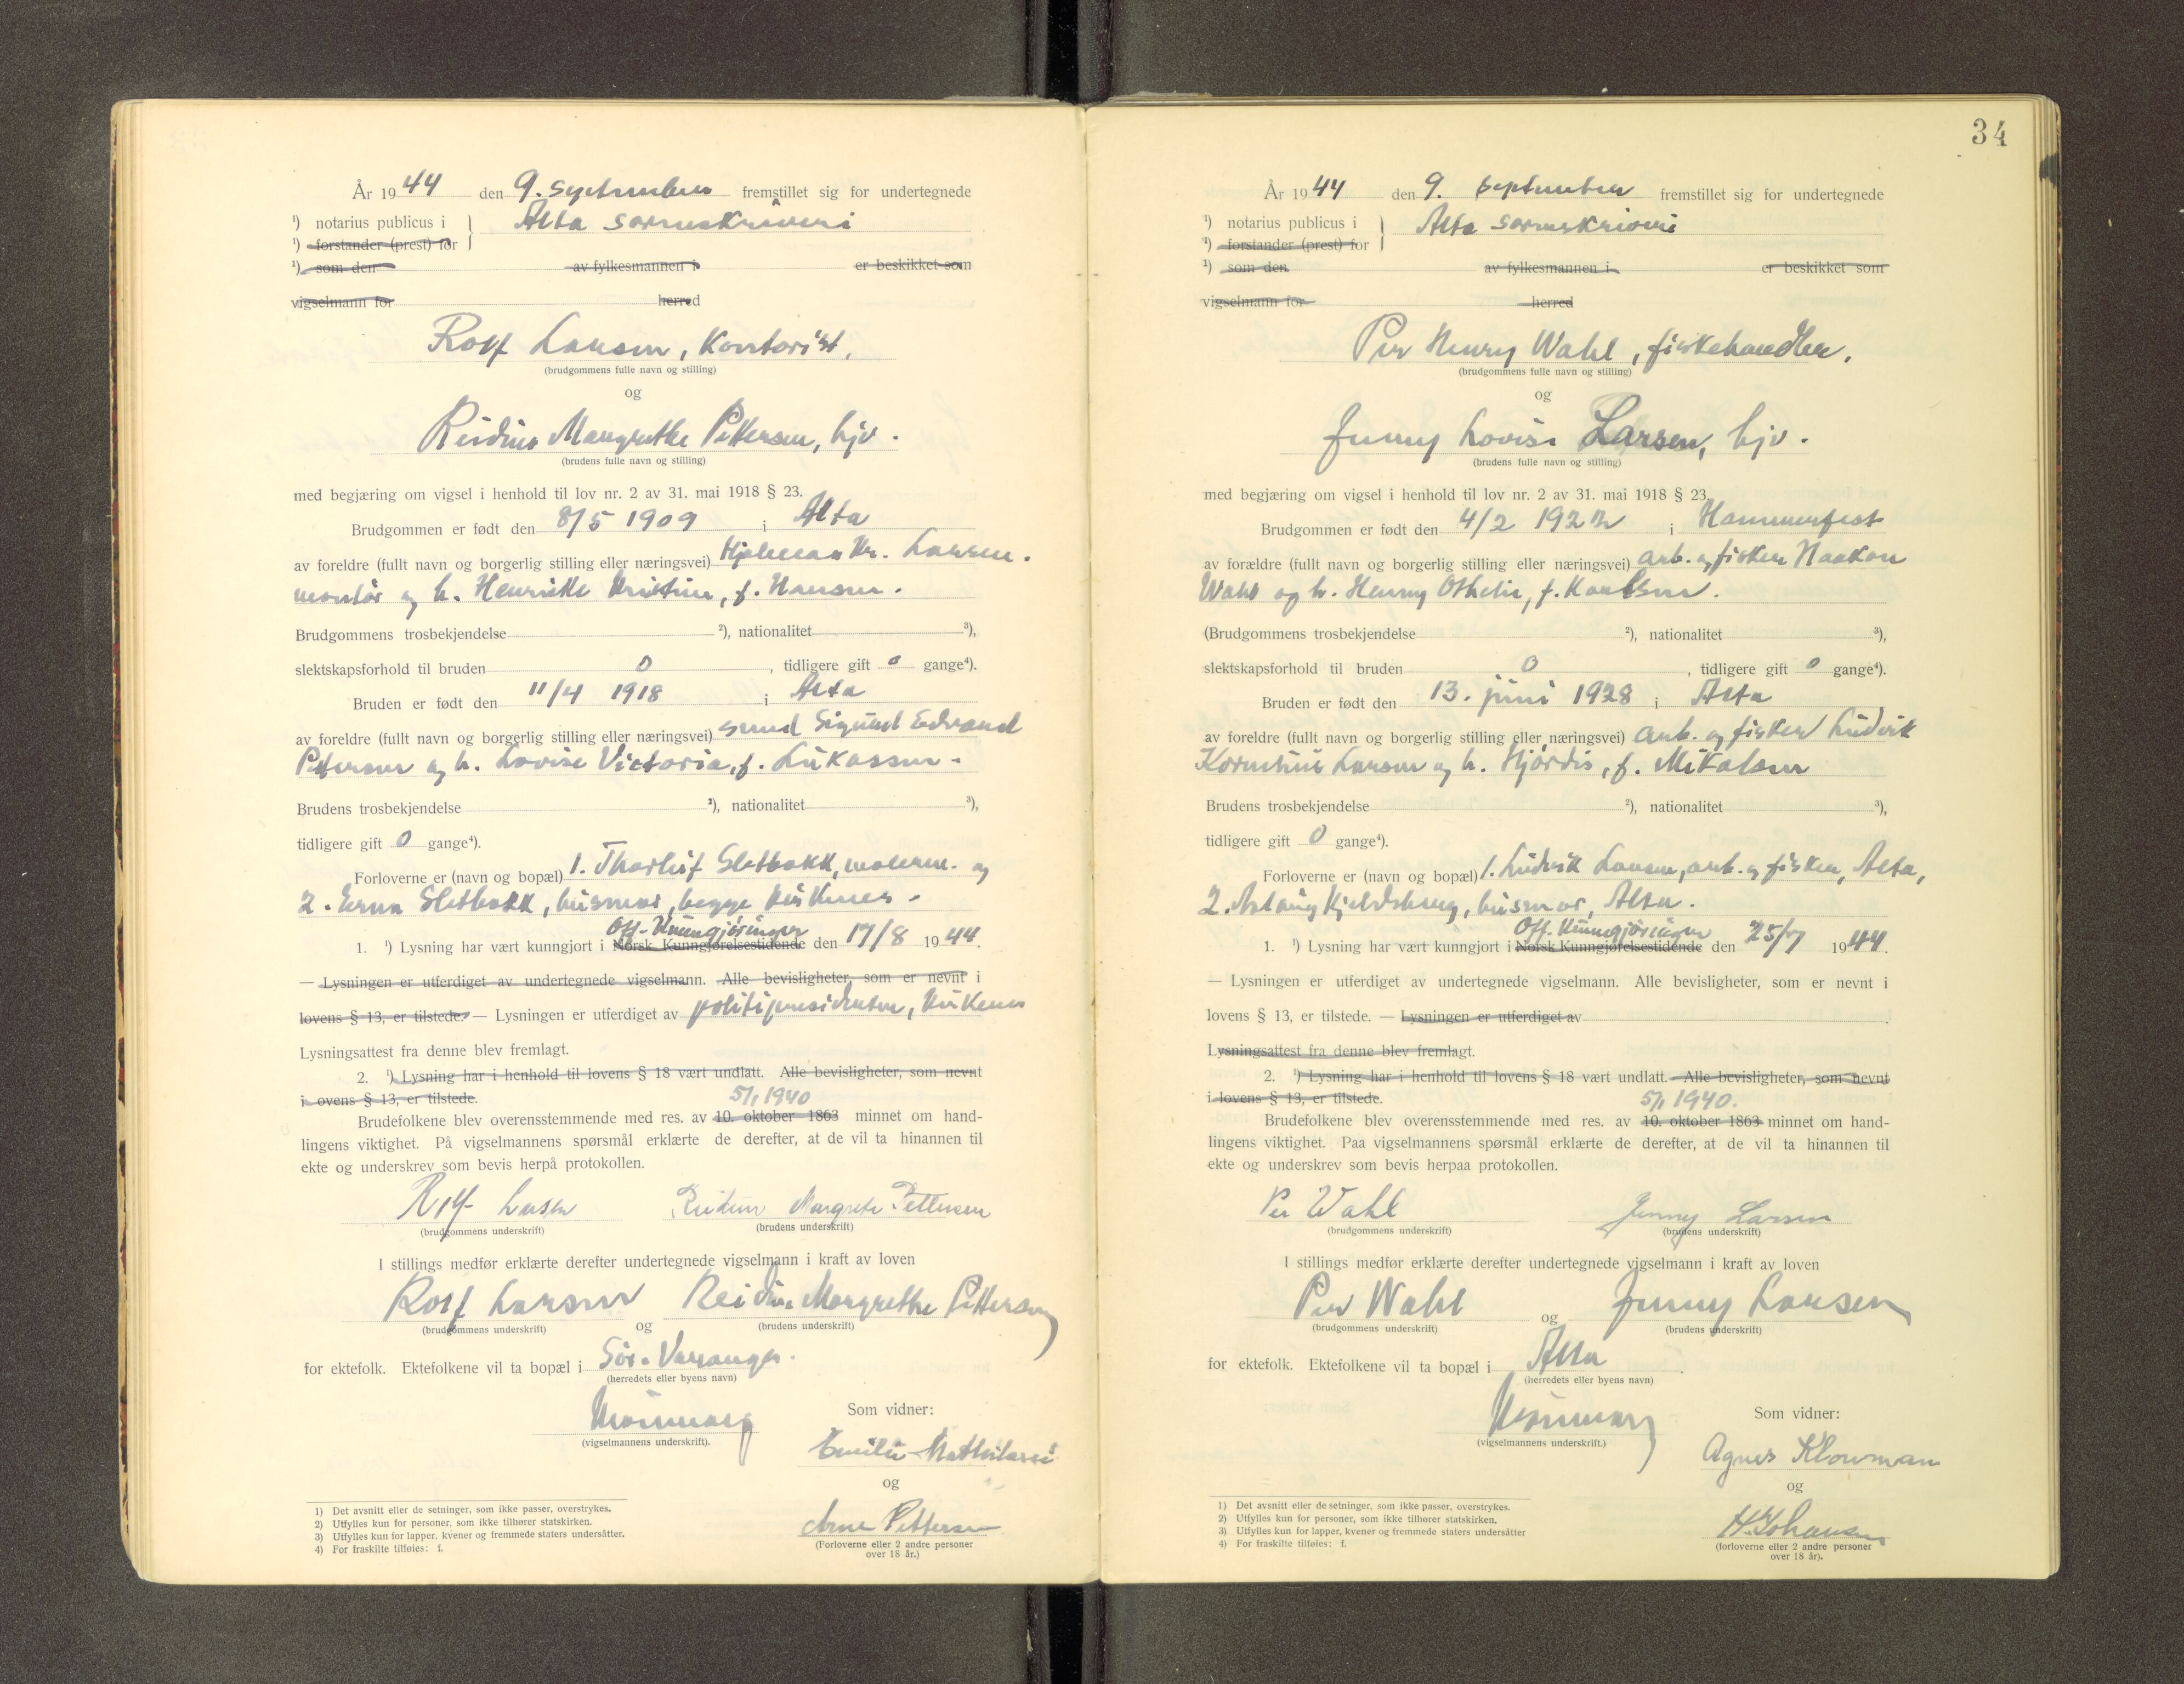 År 1944 den 9. september fremstillet sig for undertegnede
¹) notarius publicus i } Alta sorenskriveri
¹) forstander (prest) for
¹) som den av fylkesmannen i er beskikket som
vigselmann for herred
Rolf Larsen, Kontorist.
(brudgommens fulle navn og stilling)
og
Reidun Margrethe Pettersen, hjv.
(brudens fulle navn og stilling)
med begjæring om vigsel i henhold til lov nr. 2 av 31. mai 1918 § 23.
Brudgommen er født den 8/5 1909 i Alta
av foreldre (fullt navn og borgerlig stilling eller næringsvei) Hjalmar Kr. Larsen.
montør og h. Henrikke Kristine, f. Hansen.
Brudgommens trosbekjendelse ²), nationalitet ³),
slektskapsforhold til bruden 0, tidligere gift 0 gange⁴).
Bruden er født den 11/4 1918 i Alta
av foreldre (fullt navn og borgerlig stilling eller næringsvei) smed Sigurd Edvard
Pettersen og h. Lovise Victoria, f. Lukassen.
Brudens trosbekjendelse ²), nationalitet ³),
tidligere gift 0 gange⁴).
Forloverne er (navn og bopæl) 1. Thorleif Sletbakk, malerm. og
2. Erna Sletbakk, husmor, begge Kirkenes.
Off. Kunngjøringer
1. ¹) Lysning har vært kunngjort i Norsk Kunngjørelsestidende den 17/8 1944.
— Lysningen er utferdiget av undertegnede vigselmann. Alle bevisligheter, som er nevnt i
lovens § 13, er tilstede. — Lysningen er utferdiget av politipresidenten, Kirkenes
Lysningsattest fra denne blev fremlagt.
2. ¹) Lysning har i henhold til lovens § 18 vært undlatt. Alle bevisligheter, som nevnt
i ovens § 13, er tilstede.
5/1 1940
Brudefolkene blev overensstemmende med res. av 10. oktober 1863 minnet om hand-
lingens viktighet. På vigselmannens spørsmål erklærte de derefter, at de vil ta hinannen til
ekte og underskrev som bevis herpå protokollen.
Rolf Larsen Reidun Margrete Pettersen
(brudgommens underskrift) (brudens underskrift)
I stillings medfør erklærte derefter undertegnede vigselmann i kraft av loven
Rolf Larsen og Reidun Margrethe Pettersen
(brudgommens underskrift) (brudens underskrift)
for ektefolk. Ektefolkene vil ta bopæl i Sør-Varanger.
(herredets eller byens navn)
(vigselmannens underskrift).
Som vidner:
Emilie
og
Arne Pettersen
(Forloverne eller 2 andre personer
over 18 år.)
1) Det avsnitt eller de setninger, som ikke passer, overstrykes.
2) Utfylles kun for personer, som ikke tilhører statskirken.
3) Utfylles kun for lapper, kvener og fremmede staters undersåtter.
4) For fraskilte tilføies: f.
34
År 1944 den 9. september fremstillet sig for undertegnede
¹) notarius publicus i } Alta sorenskriveri
¹) forstander (prest) for
¹) som den av fylkesmannen i er beskikket som
vigselmann for herred
Per Henry Wahl, fiskehandler.
(brudgommens fulle navn og stilling)
og
Jenny Lovise Larsen, hjv.
(brudens fulle navn og stilling)
med begjæring om vigsel i henhold til lov nr. 2 av 31. mai 1918 § 23.
Brudgommen er født den 4/2 1922 i Hammerfest
av forældre (fullt navn og borgerlig stilling eller næringsvei) arb. og fisker Haakon
Wahl og h. Henny Othelie, f. Karlsen.
(Brudgommens trosbekjendelse ²), nationalitet ³),
slektskapsforhold til bruden 0, tidligere gift 0 gange⁴).
Bruden er født den 13. juni 1928 i Alta
av foreldre (fullt navn og borgerlig stilling eller næringsvei) arb. og fisker Ludvik
Kornelius Larsen og h. Hjørdis, f. Mikalsen
Brudens trosbekjendelse ²), nationalitet ³),
tidligere gift 0 gange⁴).
Forloverne er (navn og bopæl) 1. Ludvik Larsen, arb. og fisker, Alta,
2. Aslaug Kjeldsberg, husmor, Alta.
Off. Kunngjøringer
1. ¹) Lysning har vært kunngjort i Norsk Kunngjørelsestidende den 25/7 1944.
— Lysningen er utferdiget av undertegnede vigselmann. Alle bevisligheter, som er nevnt i
lovens § 13, er tilstede. — Lysningen er utferdiget av
Lysningsattest fra denne blev fremlagt.
2. ¹) Lysning har i henhold til lovens § 18 vært undlatt. Alle bevisligheter, som nevnt
i lovens § 13, er tilstede.
5/1 1940.
Brudefolkene blev overensstemmende med res. av 10. oktober 1863 minnet om hand-
lingens viktighet. Paa vigselmannens spørsmål erklærte de derefter, at de vil ta hinannen til
ekte og underskrev som bevis herpaa protokollen.
Per Wahl Jenny Larsen
(brudgommens underskrift) (brudens underskrift)
I stillings medfør erklærte derefter undertegnede vigselmann i kraft av loven
Per Wahl og Jenny Larsen
(brudgommens underskrift) (brudens underskrift)
for ektefolk. Ektefolkene vil ta bopæl i Alta.
(herredets eller byens navn)
(vigselmannens underskrift.)
Som vidner:
Agnes Klowman
og
H. Johansen
(forloverne eller 2 andre personer
over 18 år).
1) Det avsnitt eller de setninger, som ikke passer, overstrykes.
2) Utfylles kun for personer, som ikke tilhører statskirken.
3) Utfylles kun for lapper, kvener og fremmede staters undersåtter
4) For fraskilte tilføies: f.